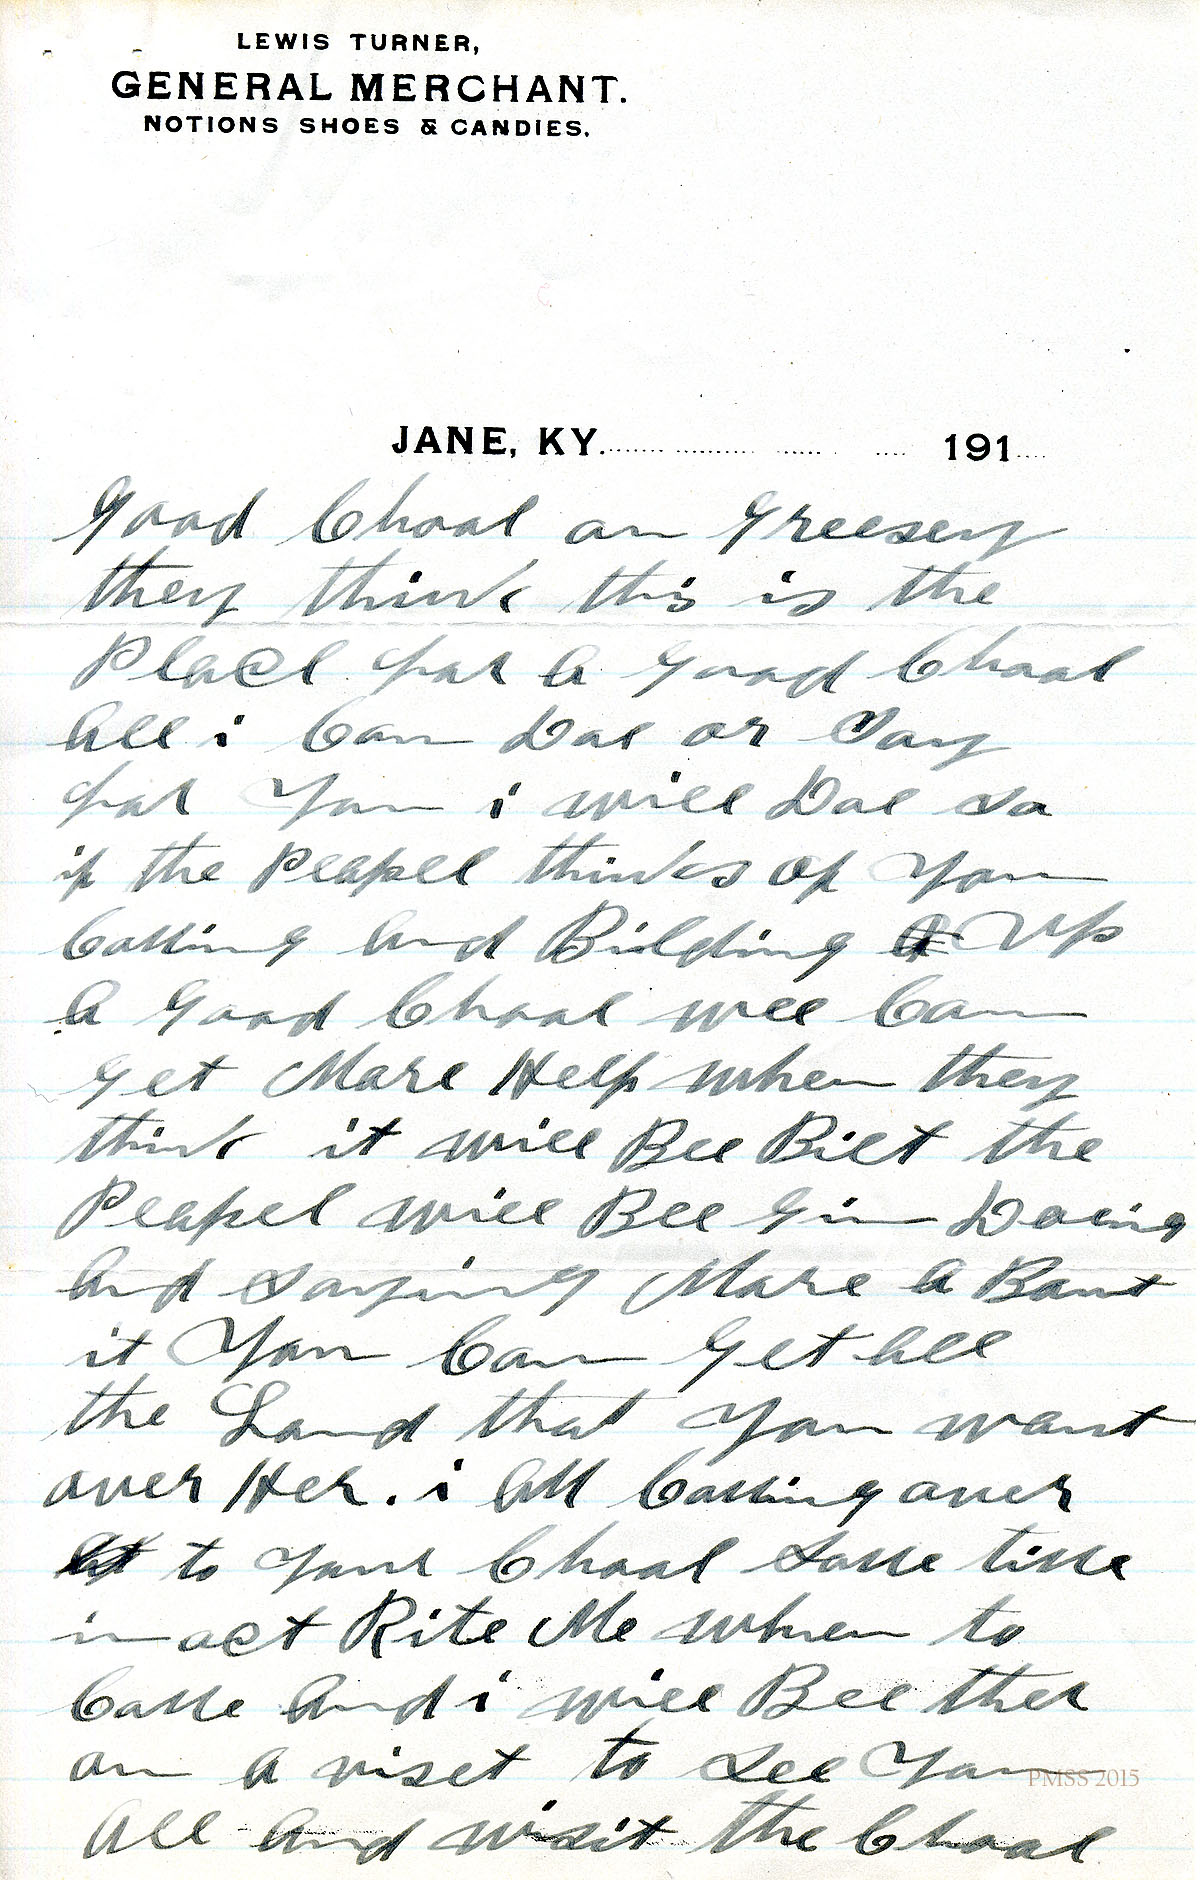 LEWIS TURNER,
GENERAL MERCHANT.
NOTIONS SHOES & CANDIES.
JANE, KY. 191
Good Chool on Greesey
they think this is the
Place for A good Chool
All i Can Doe or Say
for You i will Doe So
if the Peapel thinks of You
Comming And Bilding A Up
A Good Chool wee Can
Get More Help when they
think it will Bee Bilt the
Peapel will Bee Gin Doeing
And Saying More A Bout
it You Can Get All
the Land that You want
over Her. i Am Comming over
to Your Chool Some time
in oct Rite Me when to
Come And i will Bee ther
on A viset to See You
All And visit the Chool
PMSS 2015